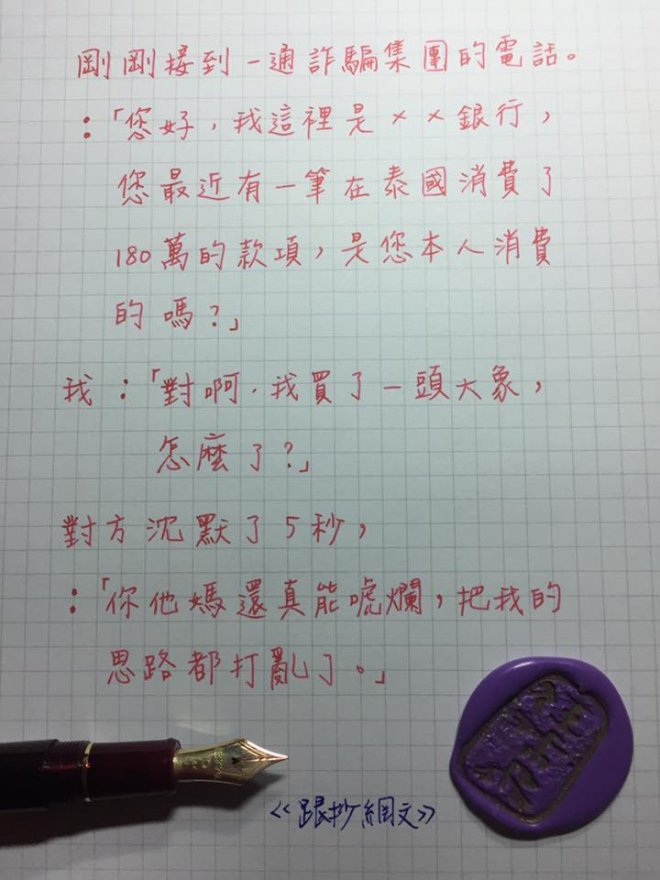 剛剛接到一通詐騙集團的電話。
：「您好，我這裡是××銀行，
您最近有一筆在泰國消費了
180萬的款項，是您本人消費
的嗎？」
我：「對啊．我買了一頭大象，
怎麼了？」
對方沉默了5秒，
：「你他媽還真能唬爛，把我的
思路都打亂了。」
《跟抄網文》